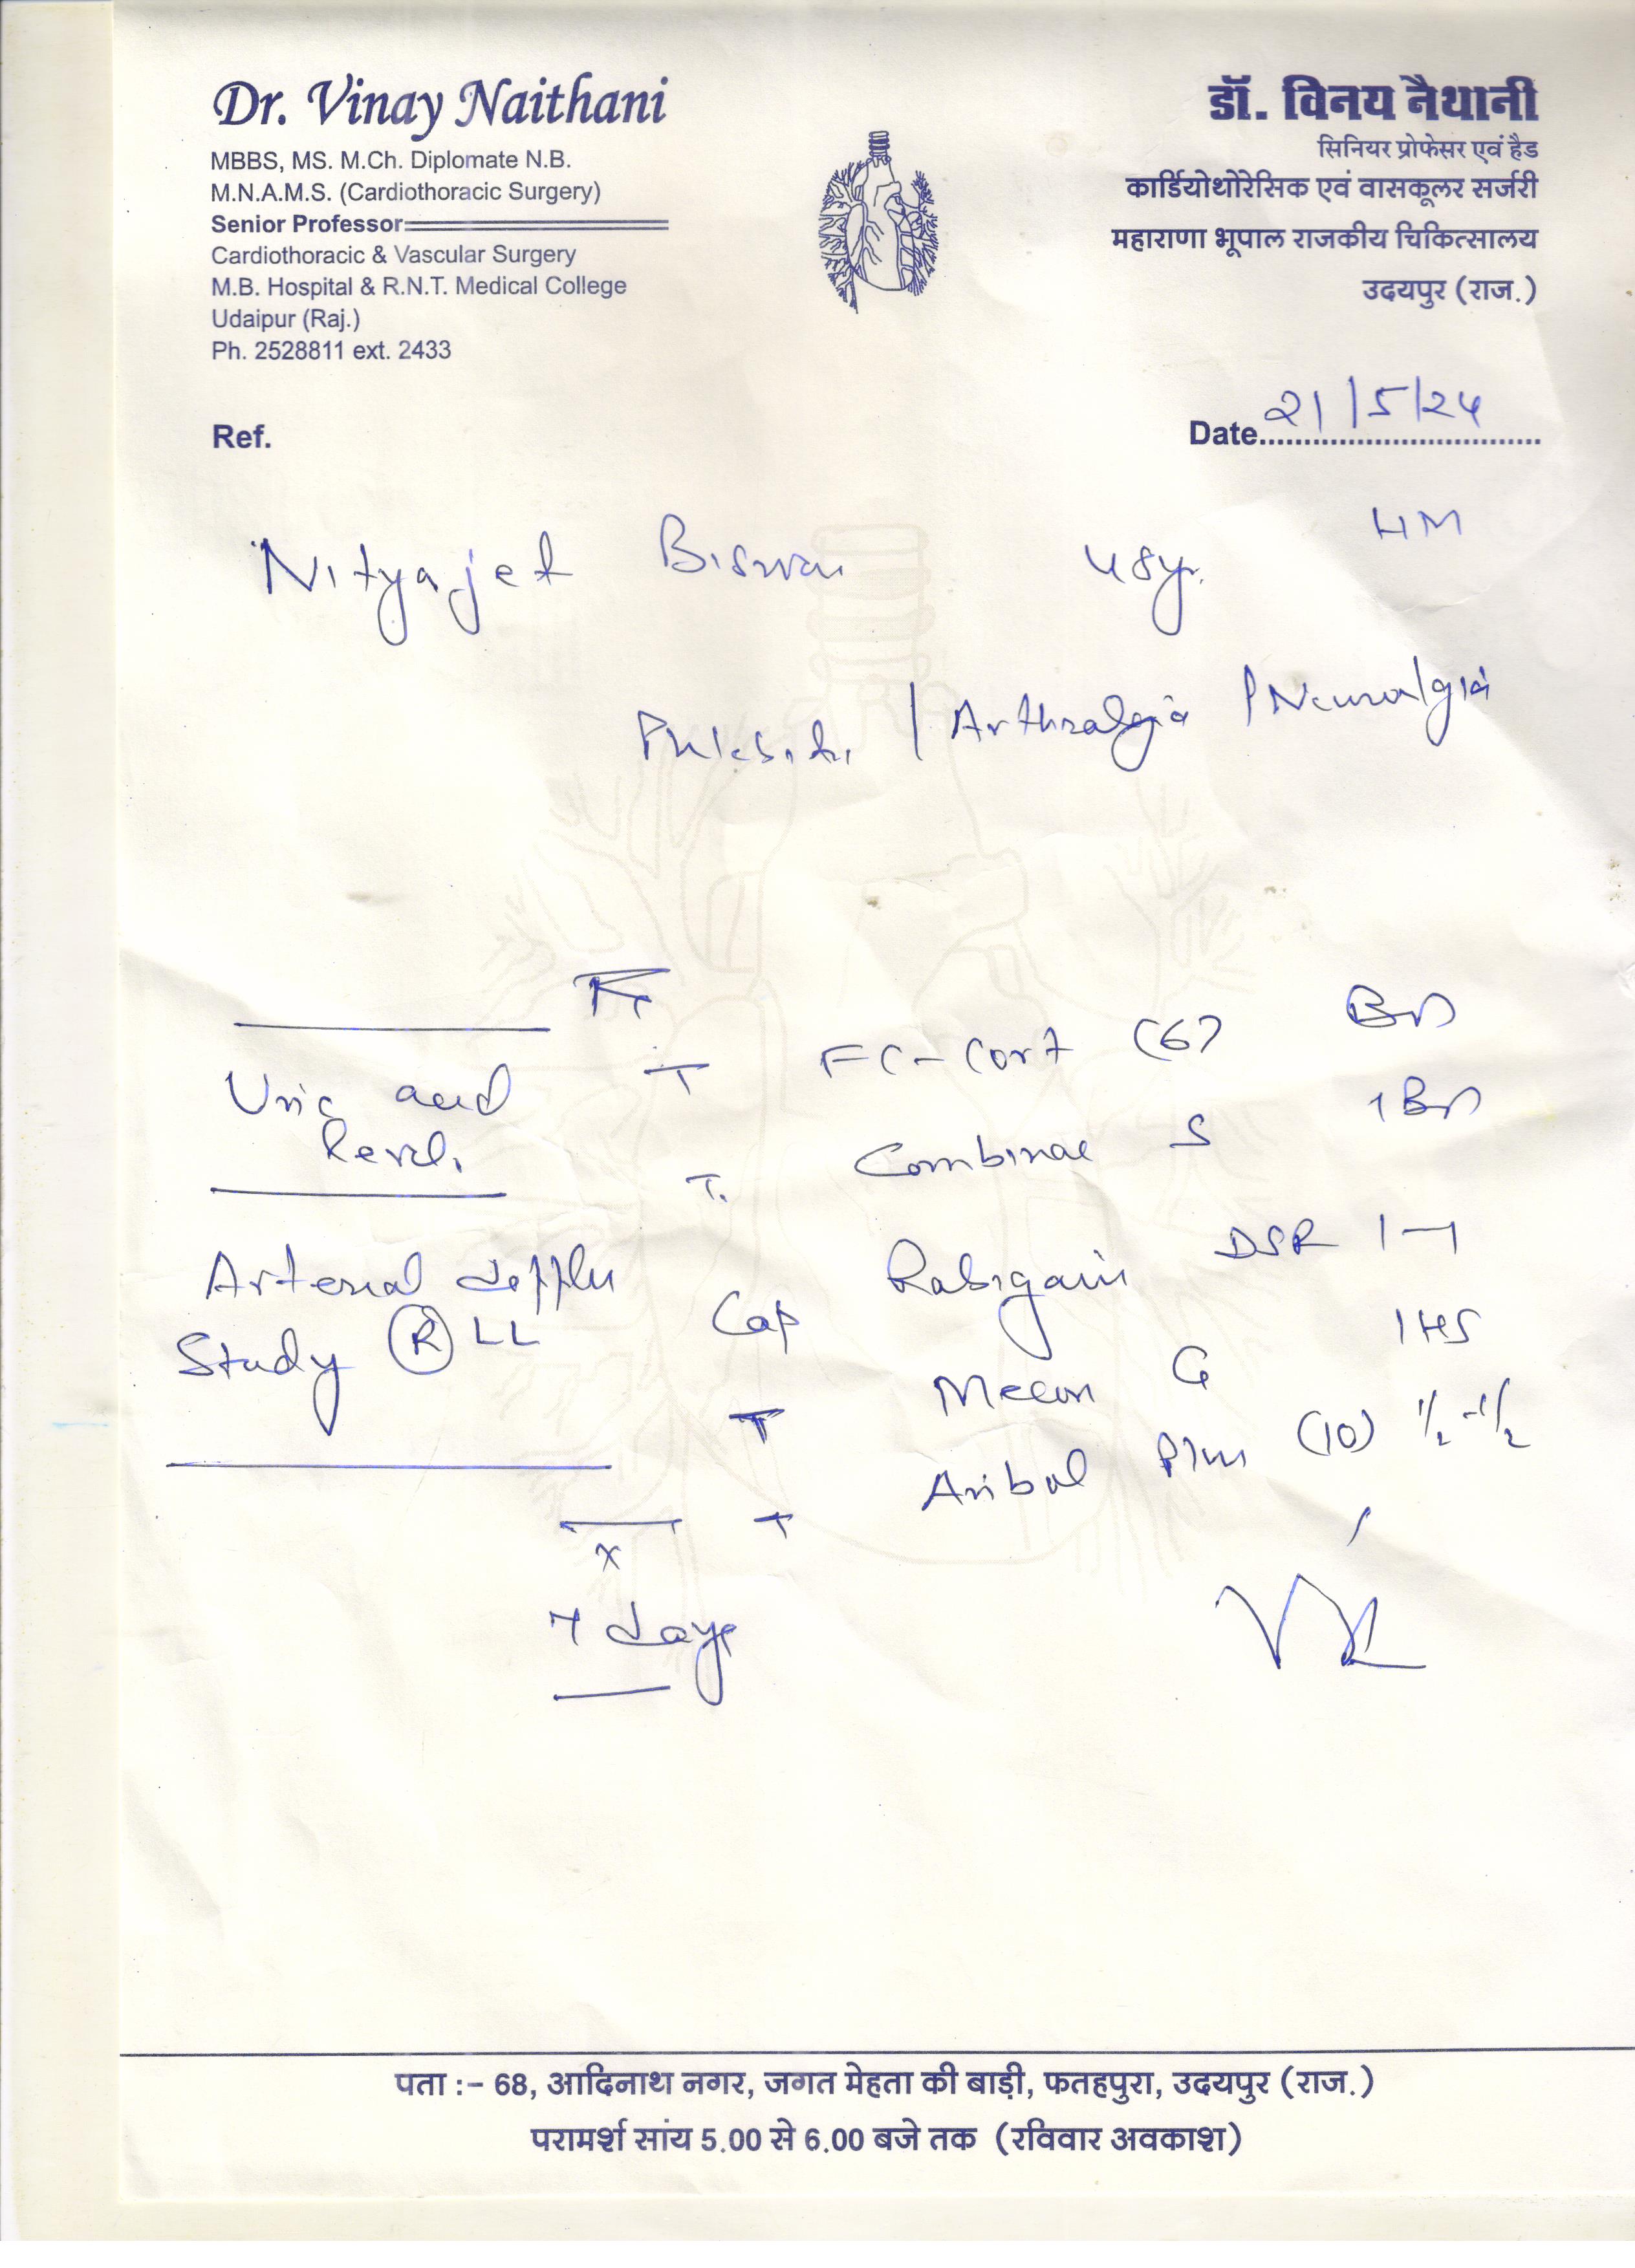 Dr. Vinay Naithani
MBBS, MS. M.Ch. Diplomate N.B.
M.N.A.M.S. (Cardiothoracic Surgery)
Senior Professor
Cardiothoracic & Vascular Surgery
M.B. Hospital & R.N.T. Medical College
Udaipur (Raj.)
Ph. 2528811 ext. 2433
डॉ. विनय नैथानी
सिनियर प्रोफेसर एवं हैड
कार्डियोथोरेसिक एवं वासकूलर सर्जरी
महाराणा भूपाल राजकीय चिकित्सालय
उदयपुर (राज.)
Ref.
Date 21/5/24
HM
Nityajet 48yr.
/ Arthralgia / Neuralgia
Uric acid
level.
Arterial
Study (R) LL
T FC-Cort (6) BD
T. S 1 BD
Cap DSR 1-1
T G 1 HS
T (10) 1/2 - 1/2
x
7 days
पता :- 68, आदिनाथ नगर, जगत मेहता की बाड़ी, फतहपुरा, उदयपुर (राज.)
परामर्श सांय 5.00 से 6.00 बजे तक (रविवार अवकाश)